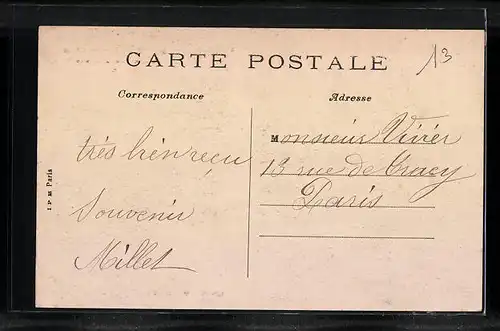 CARTE POSTALE
13
Correspondance
Adresse
très bien reçu
Souvenir
Millet
Monsieur Vivier
13 rue de Tracy
Paris
I P M Paris